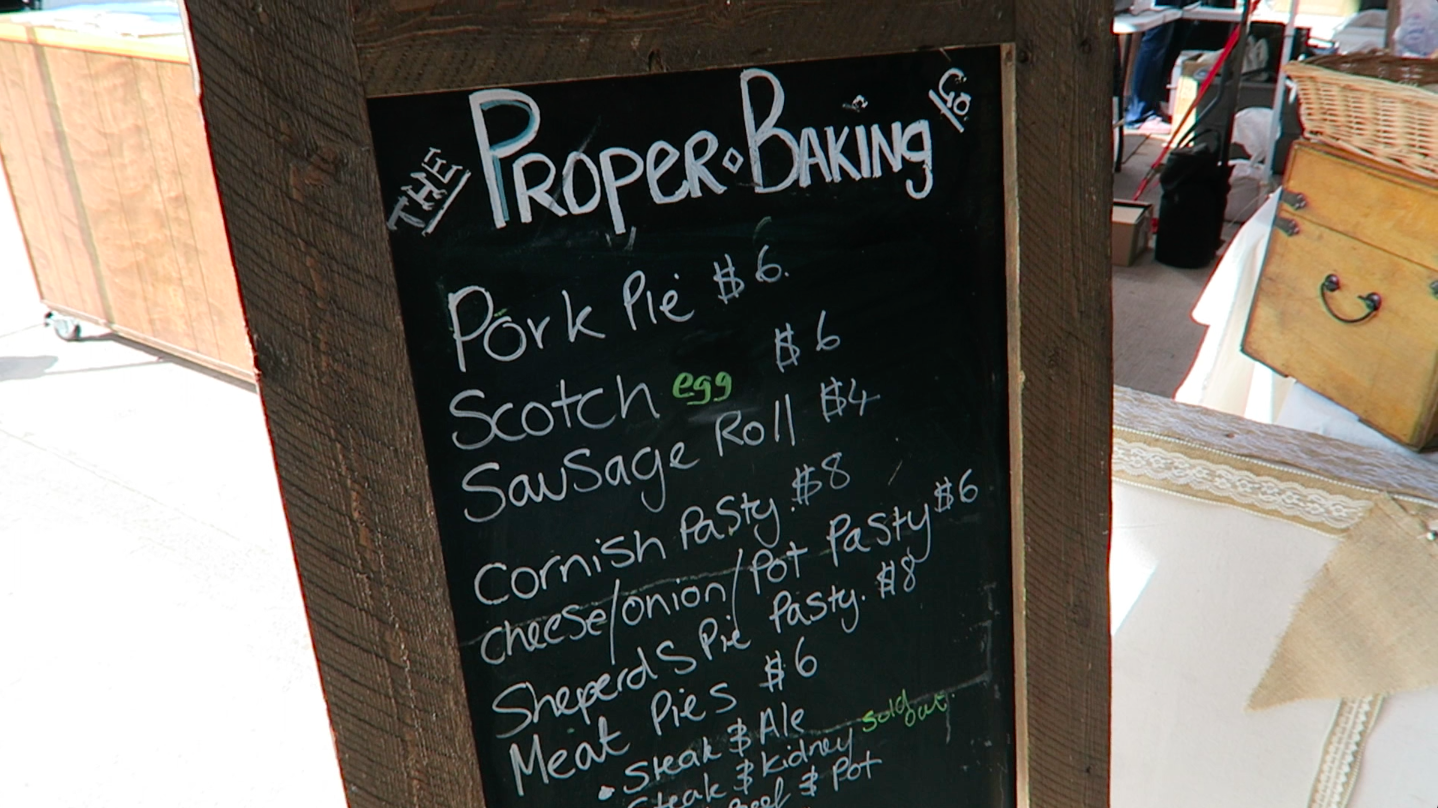 THE PROPER BAKING Co
Pork Pie $6.
Scotch egg $6
Sausage Roll $4
Cornish Pasty. $8
cheese/onion/Pot Pasty $6
Sheperds Pie Pasty. $8
Meat Pies $6
• Steak & Ale
Steak & kidney sold out.
Beef & Pot